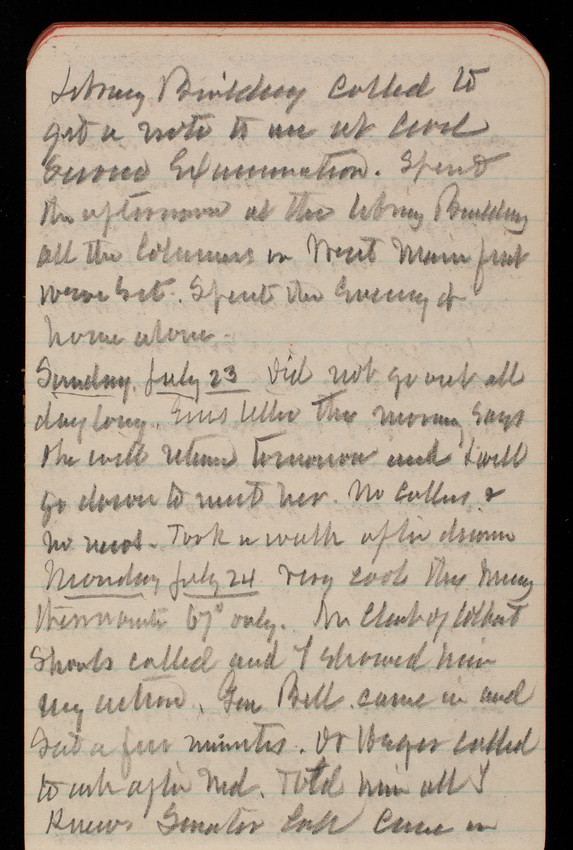 Library Building called to
get a note to me at Civil
Service Examination. Spent
the afternoon at the Library Building
all the Columns in West Main front
were set. Spent the Evening at
home alone.
Sunday, July 23 Did not go out all
day long. letter this morning says
she will return tomorrow and I will
go down to meet her. No callers &
no news. Took a walk after dinner
Monday July 24 very cool this
Thermometer 67° only. Mr of Colbert
Shoals called and I showed him
my action. Gen Bell came in and
Sat a few minutes. Dr called
to ask after Ned. Told him all I
Knew. Senator came in